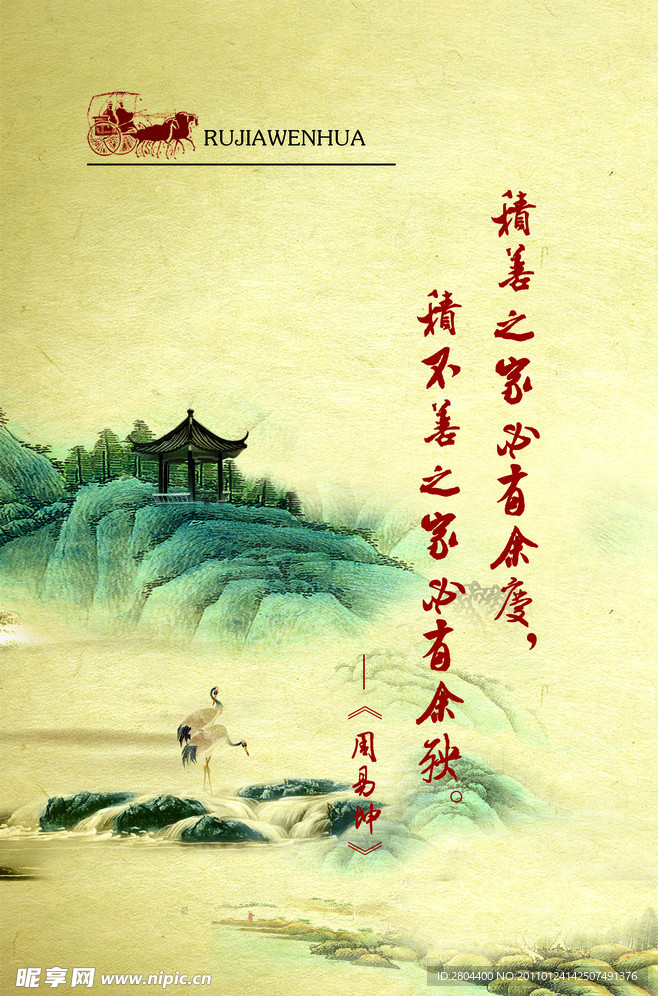 RUJIAWENHUA
積善之家必有余慶，
積不善之家必有余殃。
—《周易坤》
昵享网 www.nipic.cn
ID:2804400 NO:20110124142507491376